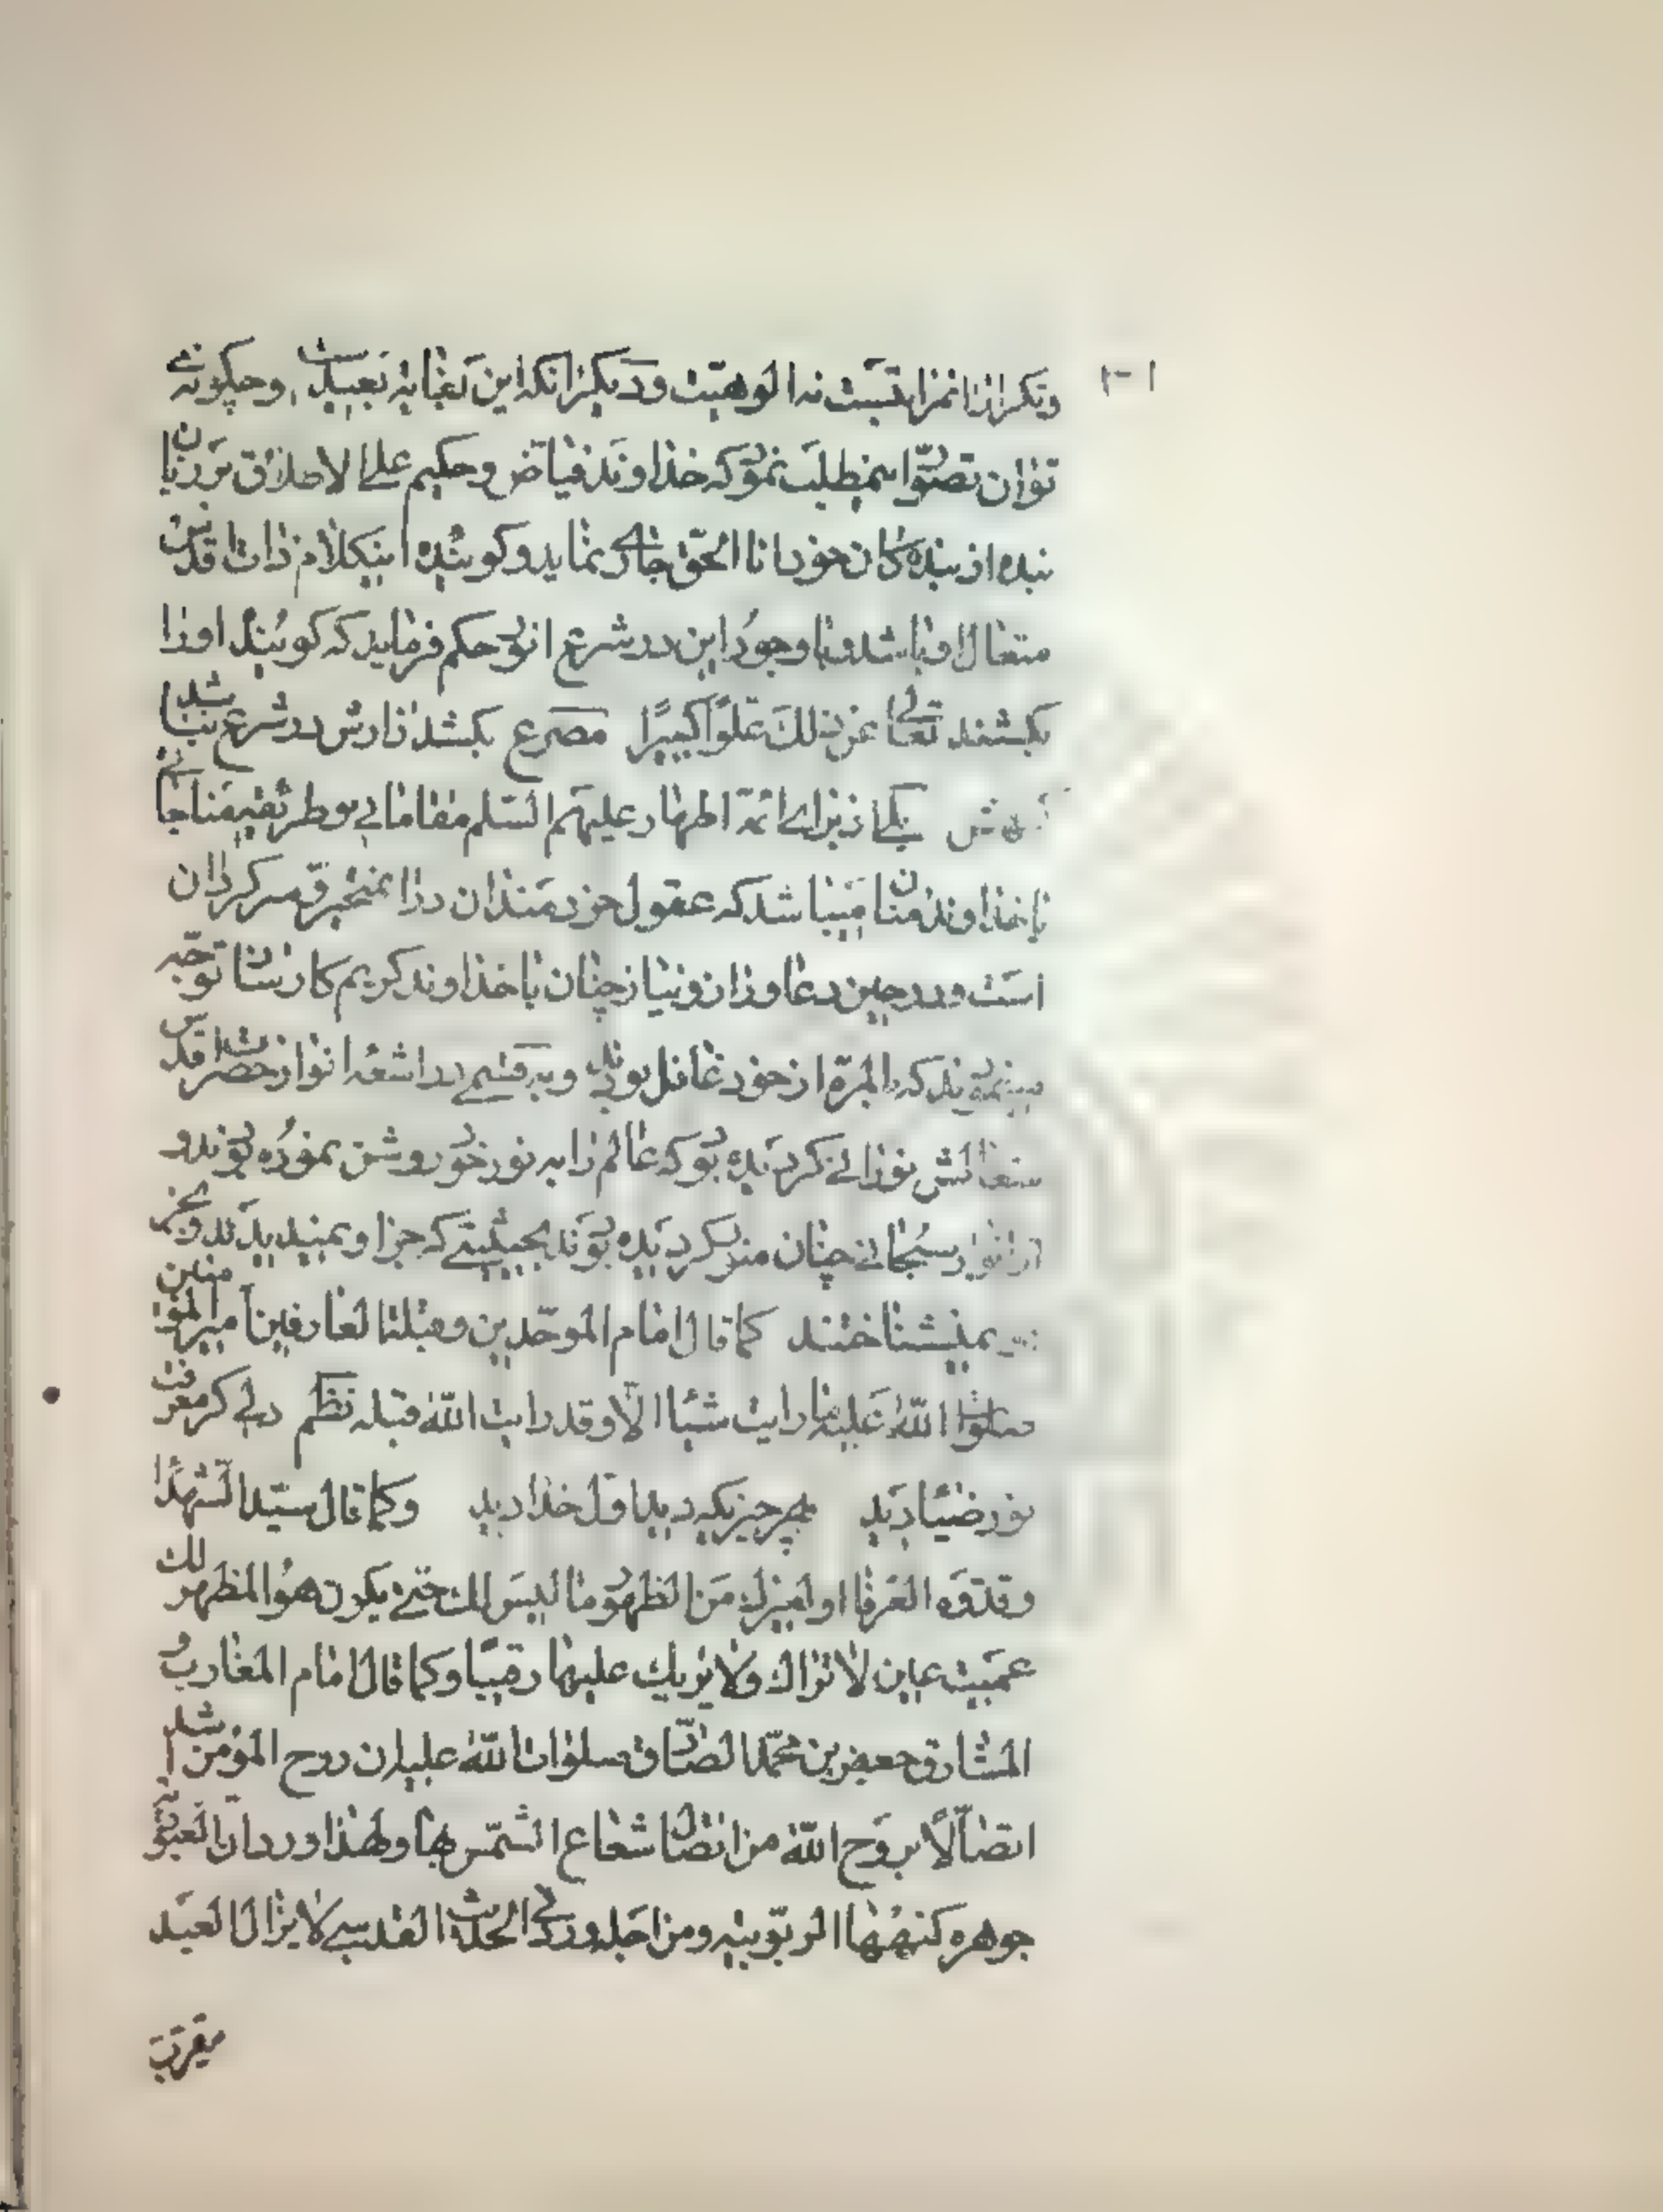 توان تصوّر اینمطلب نمود که خداوند فیاض و حکیم علی الاطلاق بر زبان
بنده از بنده کان خود انا الحق جاری نماید و گوینده اینکلام ذات اقدس
متعال او باشد و با وجود این در شرع انور حکم فرماید که گوینده او را
بکشند تعالی عن ذلك علوّا کبیرًا مصرع بکشد زارش در شرع نباشد
یکی از برای ائمّه اطهار علیهم السّلم مقاماتی بوده و طریقه مناجاتی
با خداوند منان میباشد که عقول خردمندان در آن متحیر و سرگردان
است و در حین دعا و راز و نیاز چنان با خداوند کریم کارساز توجّه
مینمودند که بالمرّه از خود غافل بودند و به قسمی در اشعّه انوار حضرت اقدس
متعالش نورانی گردیده بود که عالم را به نور خود روشن نموده بودند و
در انوار سبحانی چنان مندك گردیده بودند بحیثیتی که جز او نمیدیدند و بجز
او نمیشناختند کما قال امام الموحّدین و قبلة العارفین امیر المؤمنین
صلوات اللّه علیه ما رایت شیئا الّا و قد رایت اللّه قبله نظم دلی کز معرفت
نور ضیا دید بهر چیزیکه دید اول خدا دید و کما قال سیّد الشهدا
و قدوه العرفا او لغیرك من الظهور ما لیس لك حتی یکون هو المظهر لك
عمیت عین لا تراك ولا یزیك علیها رقیبًا و کما قال امام المغارب و
المشارق جعفر بن محمّد الصّادق صلوات اللّه علیه ان روح المؤمن اشد
اتصالًا بروح اللّه من اتصال شعاع الشّمس بها و لهذا ورد ان العبودیّة
جوهره کنهها الربوبیه و من اجله ورد فی الحدیث القدسی لا یزال العبد
یتقرب